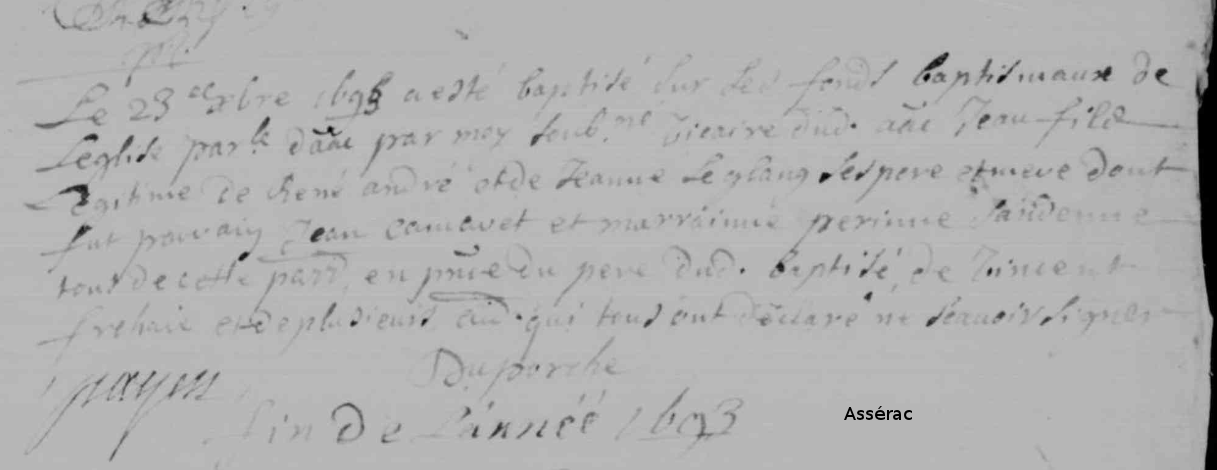 Le 23 xbre 1693 a esté baptisé sur les fonds baptismaux de
Leglise par le dãac par moy soub.né Vicaire dud. aãc Jean fils
Legitime de René andré et de Jeanne Leglang ses pere et mere dont
fut parrain Jean camavet et marrainne perinne
tous de cette parr. en pñce du pere dud. baptisé, de Vincent
frehaie et de plusieurs qui tous ont declaré ne scavoir signer
payen Duporche
fin De L'année 1693
Assérac